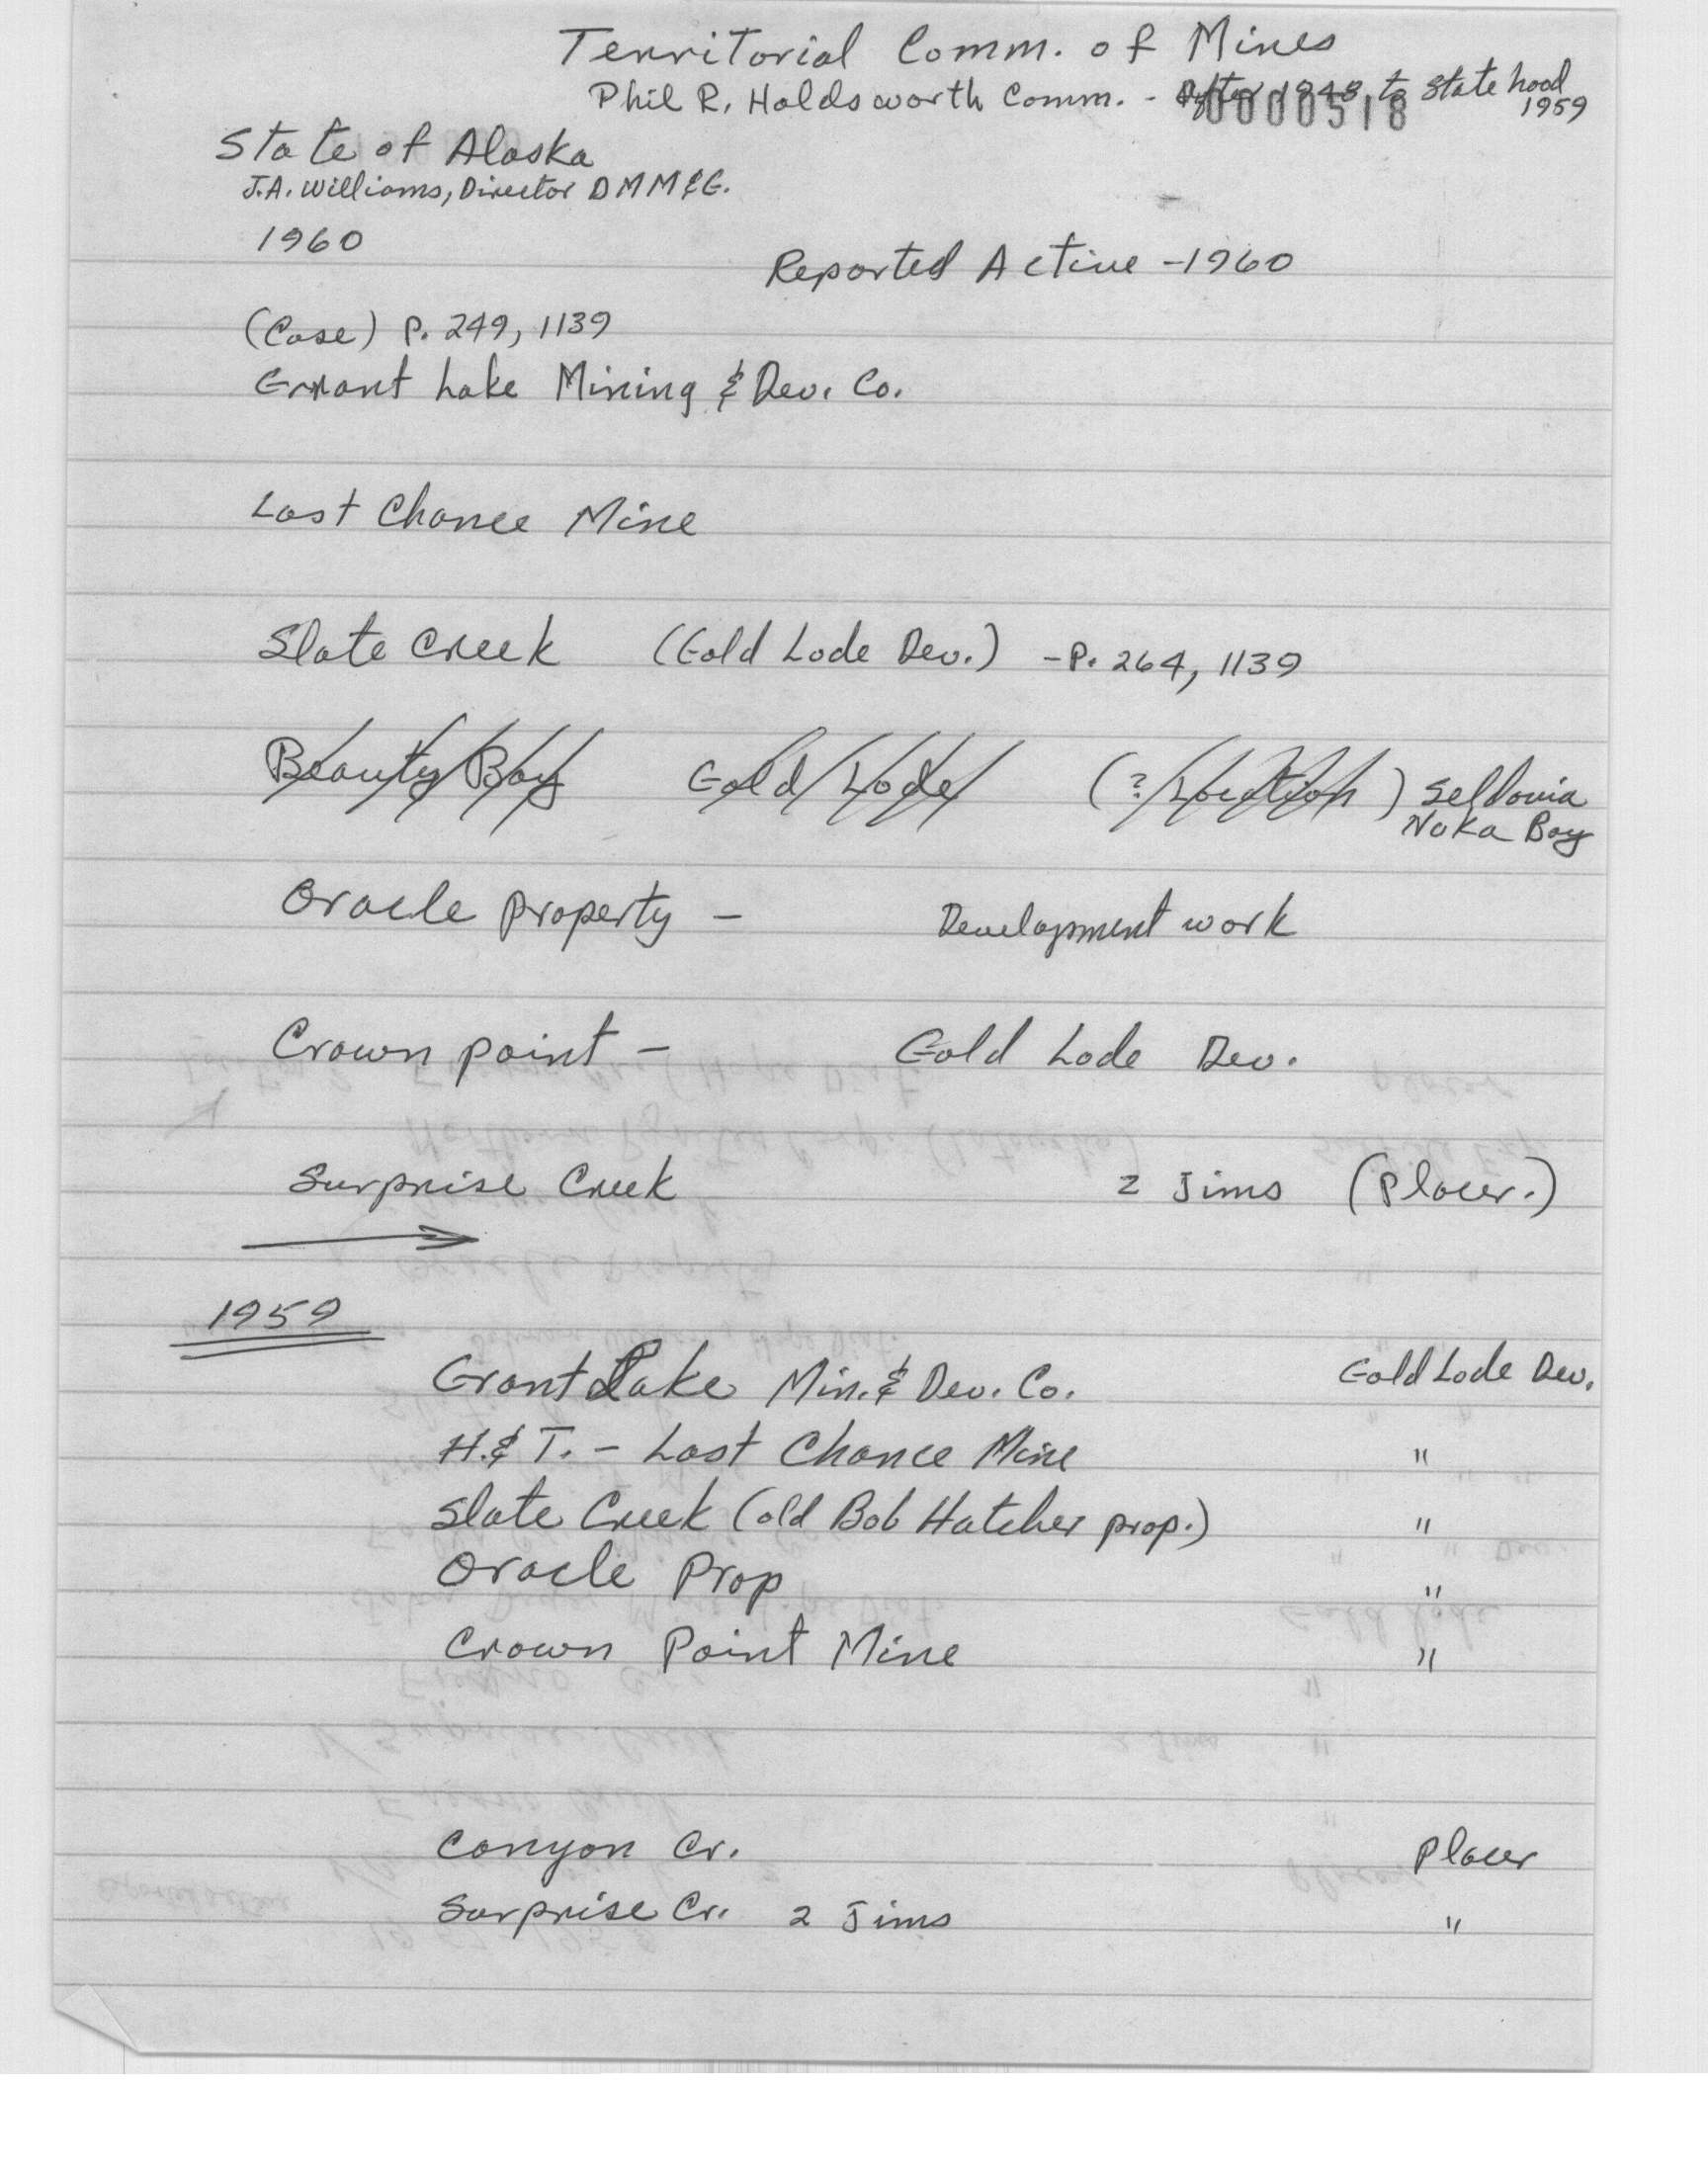 Territorial Comm. of Mines
Phil R. Holdsworth Comm. - After 1948 to State hood
1959
0000518
State of Alaska
J.A. Williams, Director DMM&G.
1960
Reported Active - 1960
(Case) P. 249, 1139
Grant Lake Mining & Dev. Co.
Last Chance Mine
Slate Creek (Gold Lode Dev.) - P. 264, 1139
Beauty Bay Gold Lode (? Location) Seldovia
Nuka Bay
Oracle property - Development work
Crown point - Gold Lode Dev.
Surprise Creek 2 Jims (Placer.)
1959
Grant Lake Min. & Dev. Co. Gold Lode Dev.
H. & T. - Last Chance Mine "
Slate Creek (old Bob Hatcher prop.) "
Oracle Prop "
Crown Point Mine "
Canyon Cr. Placer
Surprise Cr. 2 Jims "